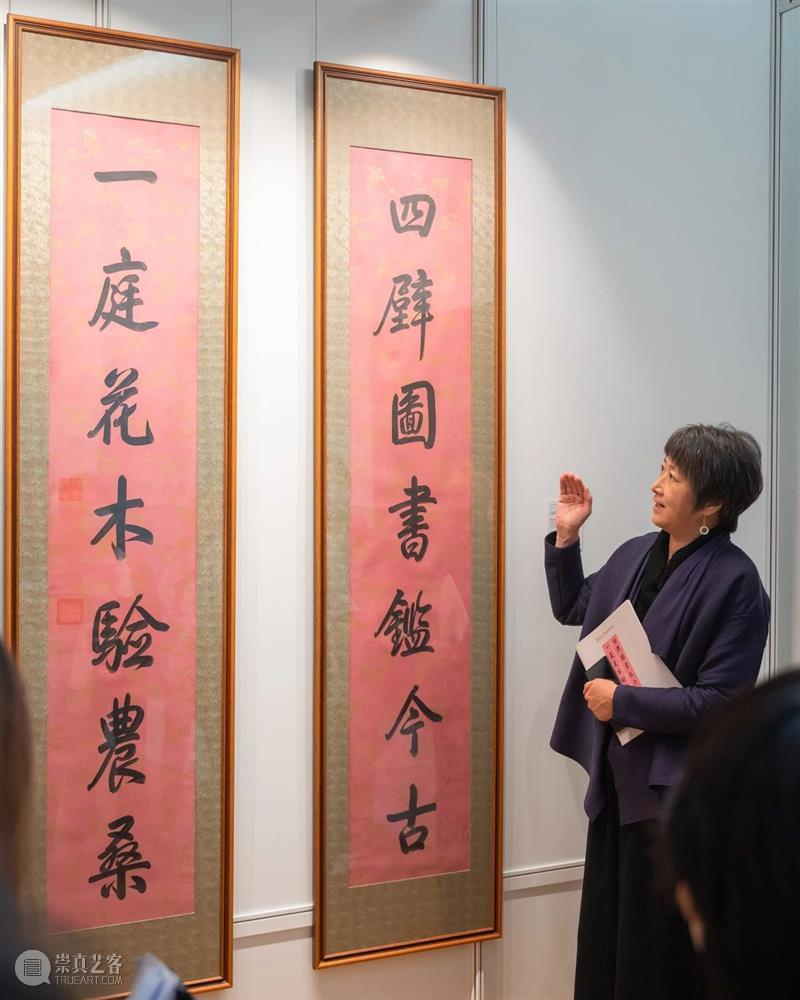 四壁圖書鑑今古
一庭花木驗農桑
Bonhams
崇真艺客
TRUEART.COM